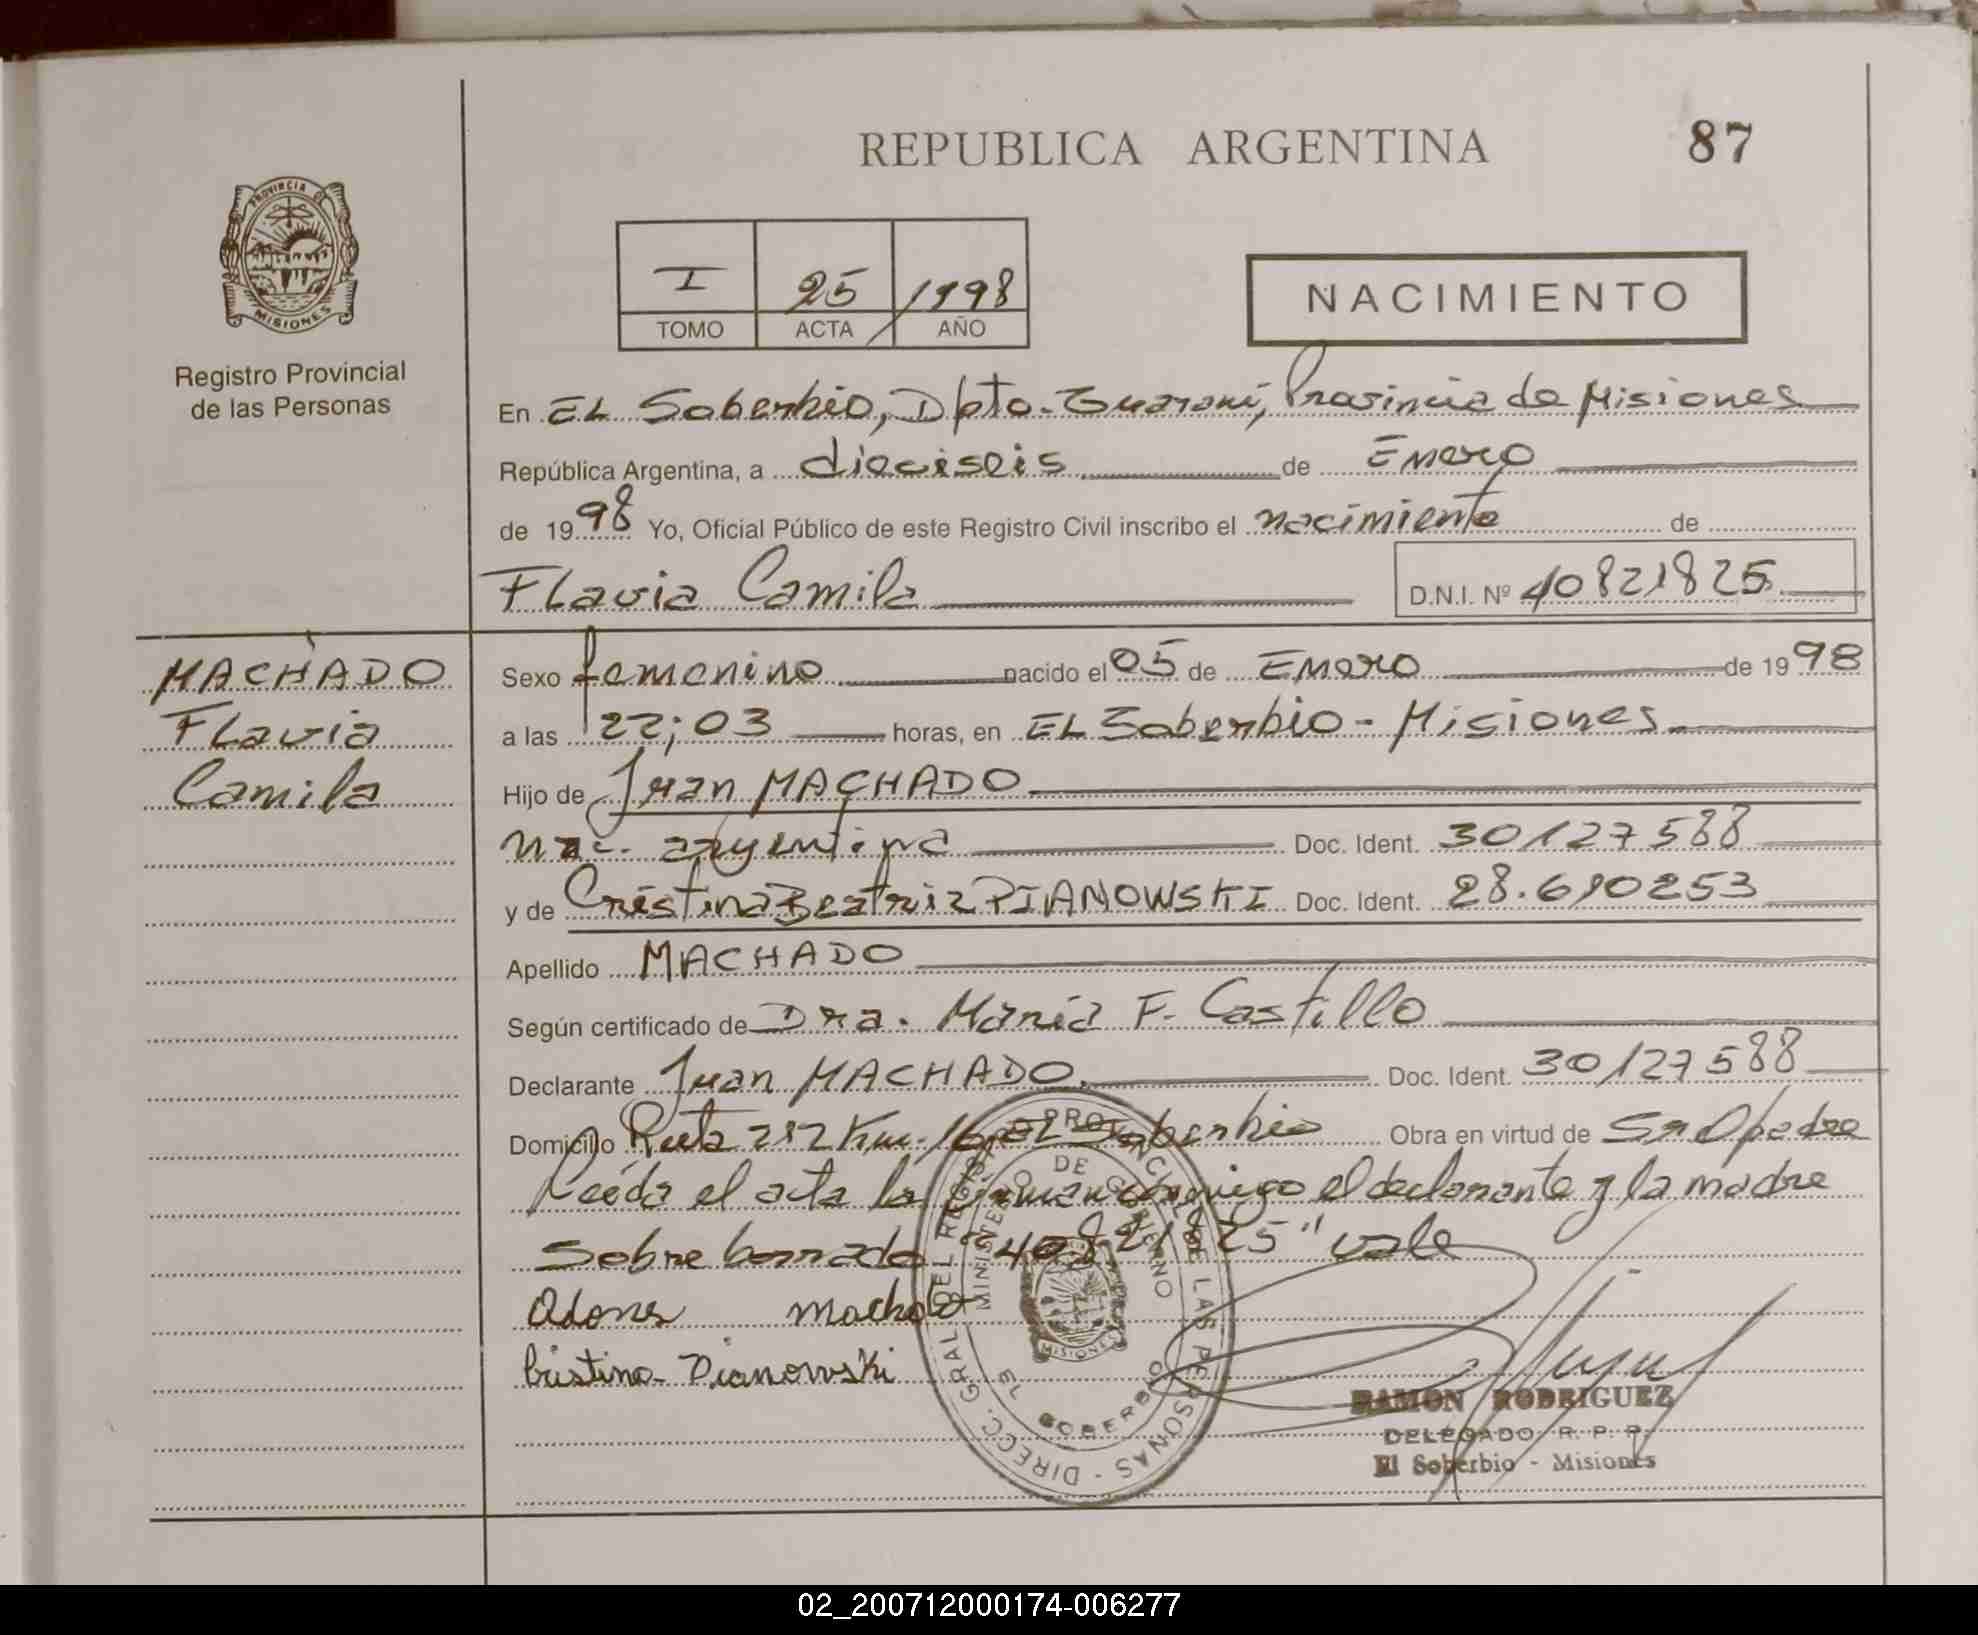 REPUBLICA ARGENTINA
87
PROVINCIA DE
MISIONES
Registro Provincial
de las Personas
I 25 1998
TOMO ACTA AÑO
NACIMIENTO
En EL Soberbio, Dpto. Guarani, Provincia de Misiones
República Argentina, a dieciseis de Enero
de 1998 Yo, Oficial Público de este Registro Civil inscribo el nacimiento de
Flavia Camila
D.N.I. Nº 40821825
MACHADO
Flavia
Camila
Sexo femenino nacido el 05 de Enero de 1998
a las 22:03 horas, en EL Soberbio - Misiones
Hijo de Juan MACHADO
nac. argentina Doc. Ident. 30127588
y de Cristina Beatriz PIANOWSKI Doc. Ident. 28.690253
Apellido MACHADO
Según certificado de Dra. María F. Castillo
Declarante Juan MACHADO Doc. Ident. 30127588
Domicilio Ruta 212 Km. 16, EL Soberbio Obra en virtud de Ser el padre
Leída el acta la firman conmigo el declarante y la madre
Sobre borrado "40821825" vale
machado
Cristina Pianowski
DIRECC. GRAL DEL REGISTRO PROVINCIAL DE LAS PERSONAS -
MINISTERIO DE GOBIERNO
MISIONES
EL SOBERBIO
RAMON RODRIGUEZ
DELEGADO R. P. P.
El Soberbio - Misiones
02_200712000174-006277